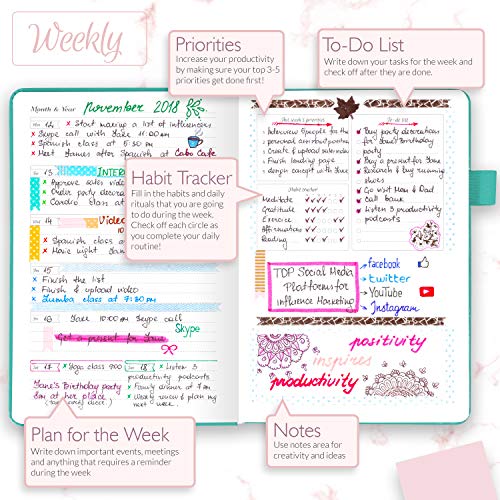 Weekly
Priorities
Increase your productivity
by making sure your top 3-5
priorities get done first!
To-Do List
Write down your tasks for the week and
check off after they are done.
Month & Year November 2018
Mon 12 Start making a list of influencers
Skype call with Jane 11:00 AM
Spanish class at 5:30 PM
Meet James after Spanish at Cabo Cafe
13
Approve sales video
Order party decorations
Cardio class at
14 Video
Spanish class
Movie night
15
Finish the list
Finish & upload video
Zumba class at 7:30 PM
16 Jane 10:00 AM Skype call
Skype
Get a present for Jane
17 Yoga class 9:00
Jane's Birthday party
8PM at her place
18 Listen 3
productivity podcasts
Family dinner at 7 PM
Weekly review & plan my
next week
Habit Tracker
Fill in the habits and daily
rituals that you are going
to do during the week.
Check off each circle as
you complete your daily
routine!
This week's priorities
Interview 5 people for the
personal assistant position
Create & upload sales video
Finish landing page
design concept with Jane
Habit tracker
Meditate
Gratitude
Exercise
Affirmations
Reading
To-do list
Buy party decorations
for Jane's Birthday
party
Buy a present for Jane
Research & buy running
shoes
Go visit Mom & Dad
Call bank
Listen 3 productivity
podcasts
TOP Social Media
Platforms for
Influence Marketing
facebook
twitter
YouTube
Instagram
positivity
inspires
productivity
Plan for the Week
Write down important events, meetings
and anything that requires a reminder
during the week
Notes
Use notes area for
creativity and ideas